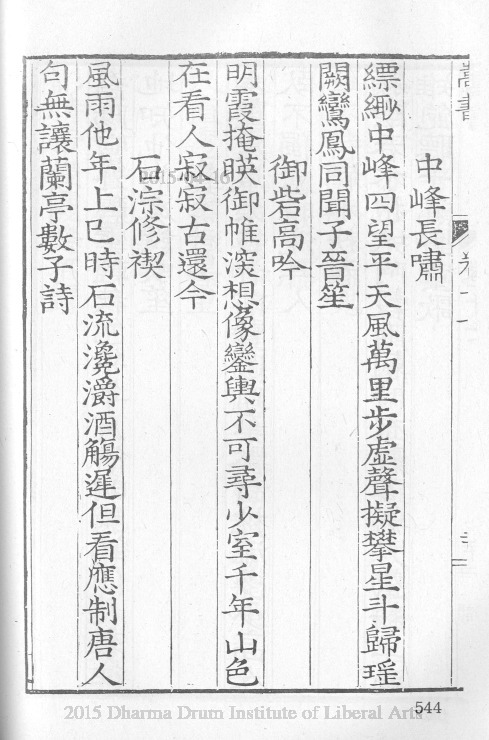 嵩書
中峰長嘯
縹緲中峰四望平天風萬里步虛聲擬攀星斗歸瑤
闕鸞鳳同聞子晉笙
御砦高吟
明霞掩暎御帷深想像鑾輿不可尋少室千年山色
在看人寂寂古還今
石淙修禊
風雨他年上巳時石流瀺灂酒觴遲但看應制唐人
句無讓蘭亭數子詩
544
2015 Dharma Drum Institute of Liberal Arts